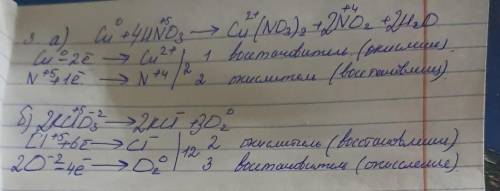 3 а) Cu⁰ + 4HN⁺⁵O₃ → Cu²⁺(NO₃)₂ + 2N⁺⁴O₂ + 2H₂O
Cu⁰ - 2ē → Cu²⁺ | 2 | 1 восстановитель (окисление).
N⁺⁵ + 1ē → N⁺⁴ | 2 окислитель (восстановление)
б) 2KCl⁺⁵O₃⁻² → 2KCl⁻ + 3O₂⁰
Cl⁺⁵ + 6ē → Cl⁻ | 12 | 2 окислитель (восстановление)
2O⁻² - 4ē → O₂⁰ | 3 восстановитель (окисление)